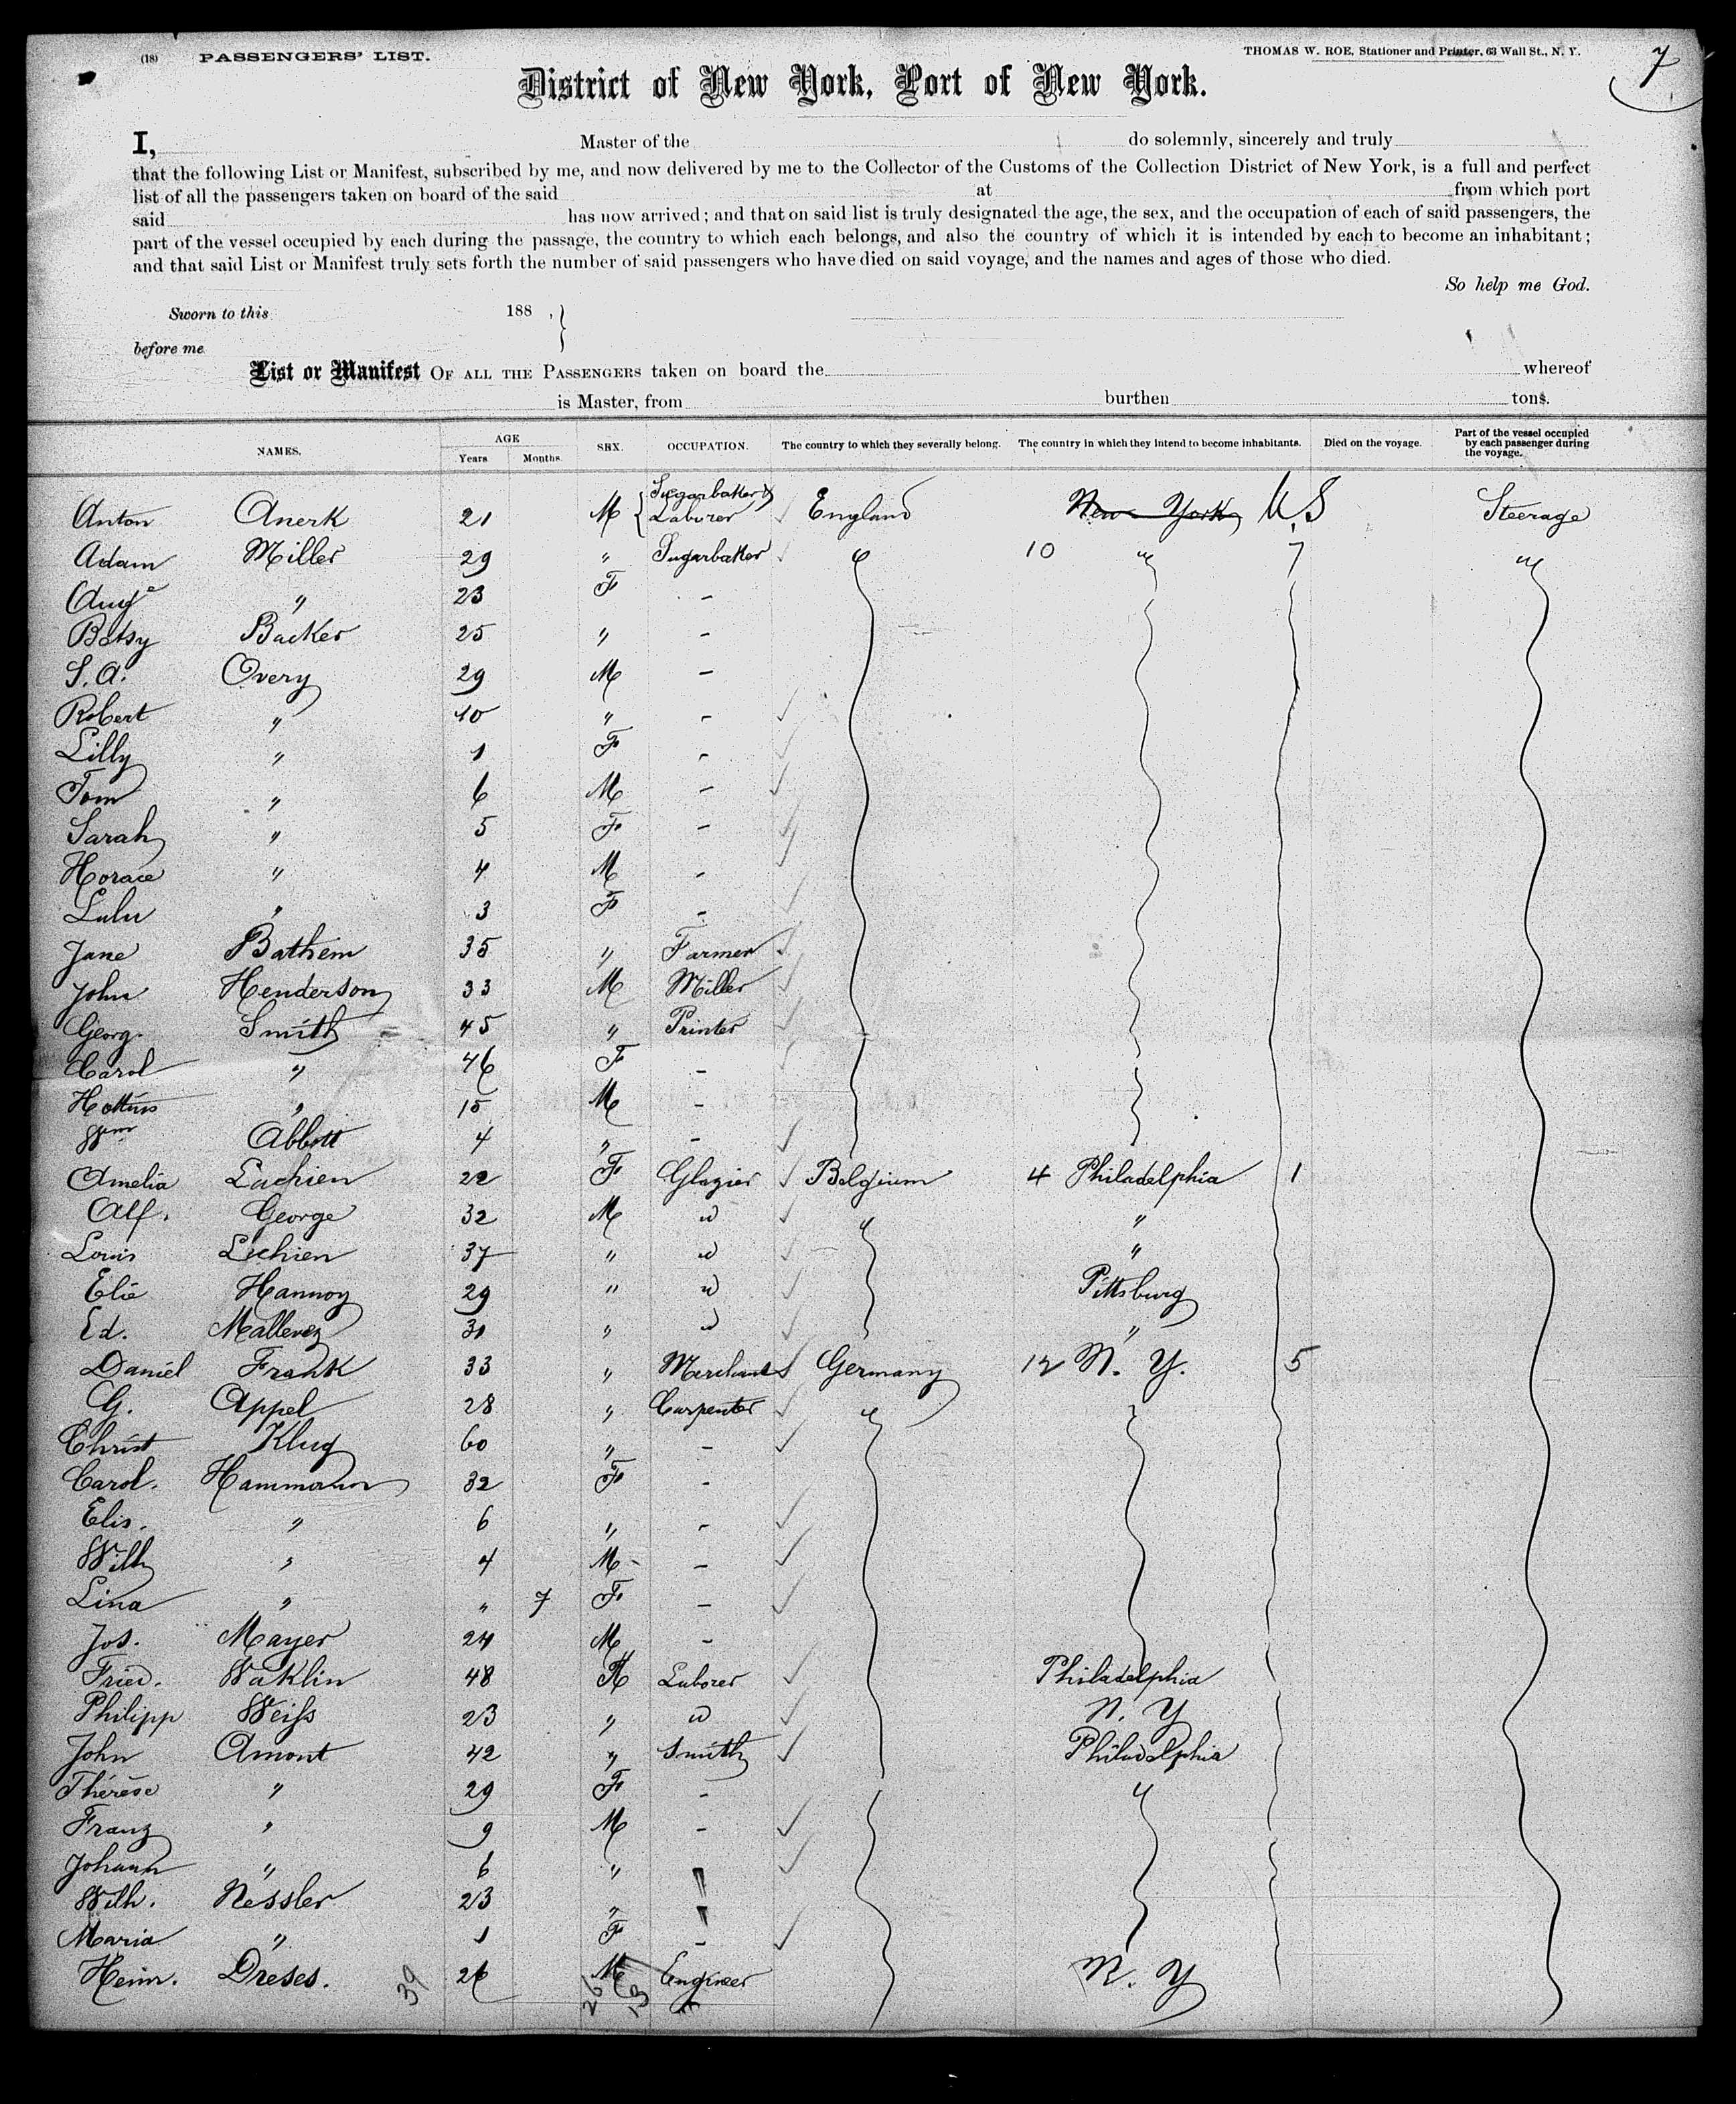 (18) PASSENGERS' LIST. THOMAS W. ROE, Stationer and Printer, 63 Wall St., N. Y. 7
District of New York, Port of New York.
I, Master of the do solemnly, sincerely and truly
that the following List or Manifest, subscribed by me, and now delivered by me to the Collector of the Customs of the Collection District of New York, is a full and perfect
list of all the passengers taken on board of the said at from which port
said has now arrived; and that on said list is truly designated the age, the sex, and the occupation of each of said passengers, the
part of the vessel occupied by each during the passage, the country to which each belongs, and also the country of which it is intended by each to become an inhabitant;
and that said List or Manifest truly sets forth the number of said passengers who have died on said voyage, and the names and ages of those who died.
So help me God.
Sworn to this 188 ,
before me
List or Manifest OF ALL THE PASSENGERS taken on board the whereof
is Master, from burthen tons.
NAMES. AGE Years Months. SEX. OCCUPATION. The country to which they severally belong. The country in which they intend to become inhabitants. Died on the voyage. Part of the vessel occupied by each passenger during the voyage.
Anton Anerk 21 M Sugarbaker & Laborer England New York U.S Steerage
Adam Miller 29 " Sugarbaker " 10 " 7 "
Auge " 23 F -
Betsy Backer 25 " -
S. A. Overy 29 M -
Robert " 10 " -
Lilly " 1 F -
Tom " 6 M -
Sarah " 5 F -
Horace " 4 M -
Lulu " 3 F -
Jane Bathem 35 " Farmer
John Henderson 33 M Miller
Georg. Smith 45 " Printer
Carol " 46 F -
" 15 M -
Wm Abbott 4 " -
Amelia Lachien 22 F Glazier Belgium 4 Philadelphia 1
Alf. George 32 M " " "
Louis Lechien 37 " " "
Elie Hannoy 29 " " Pittsburg
Ed. Mallevez 31 " " "
Daniel Frank 33 " Merchant Germany 12 N. Y. 5
G. Appel 28 " Carpenter "
Christ Klug 60 " -
Carol. Hammann 32 F -
Elis. " 6 " -
Wilh " 4 M -
Lina " " 7 F -
Jos. Mayer 24 M -
Fried. Waklin 48 M Laborer Philadelphia
Philipp Weiss 23 " " N. Y
John Amont 42 " Smith Philadelphia
Thérèse " 29 F - "
Franz " 9 M -
Johann " 6 "
Wilh. Nessler 23 "
Maria " 1 F -
Heinr. Dreses. 39 26 M Engineer N. Y
26 13